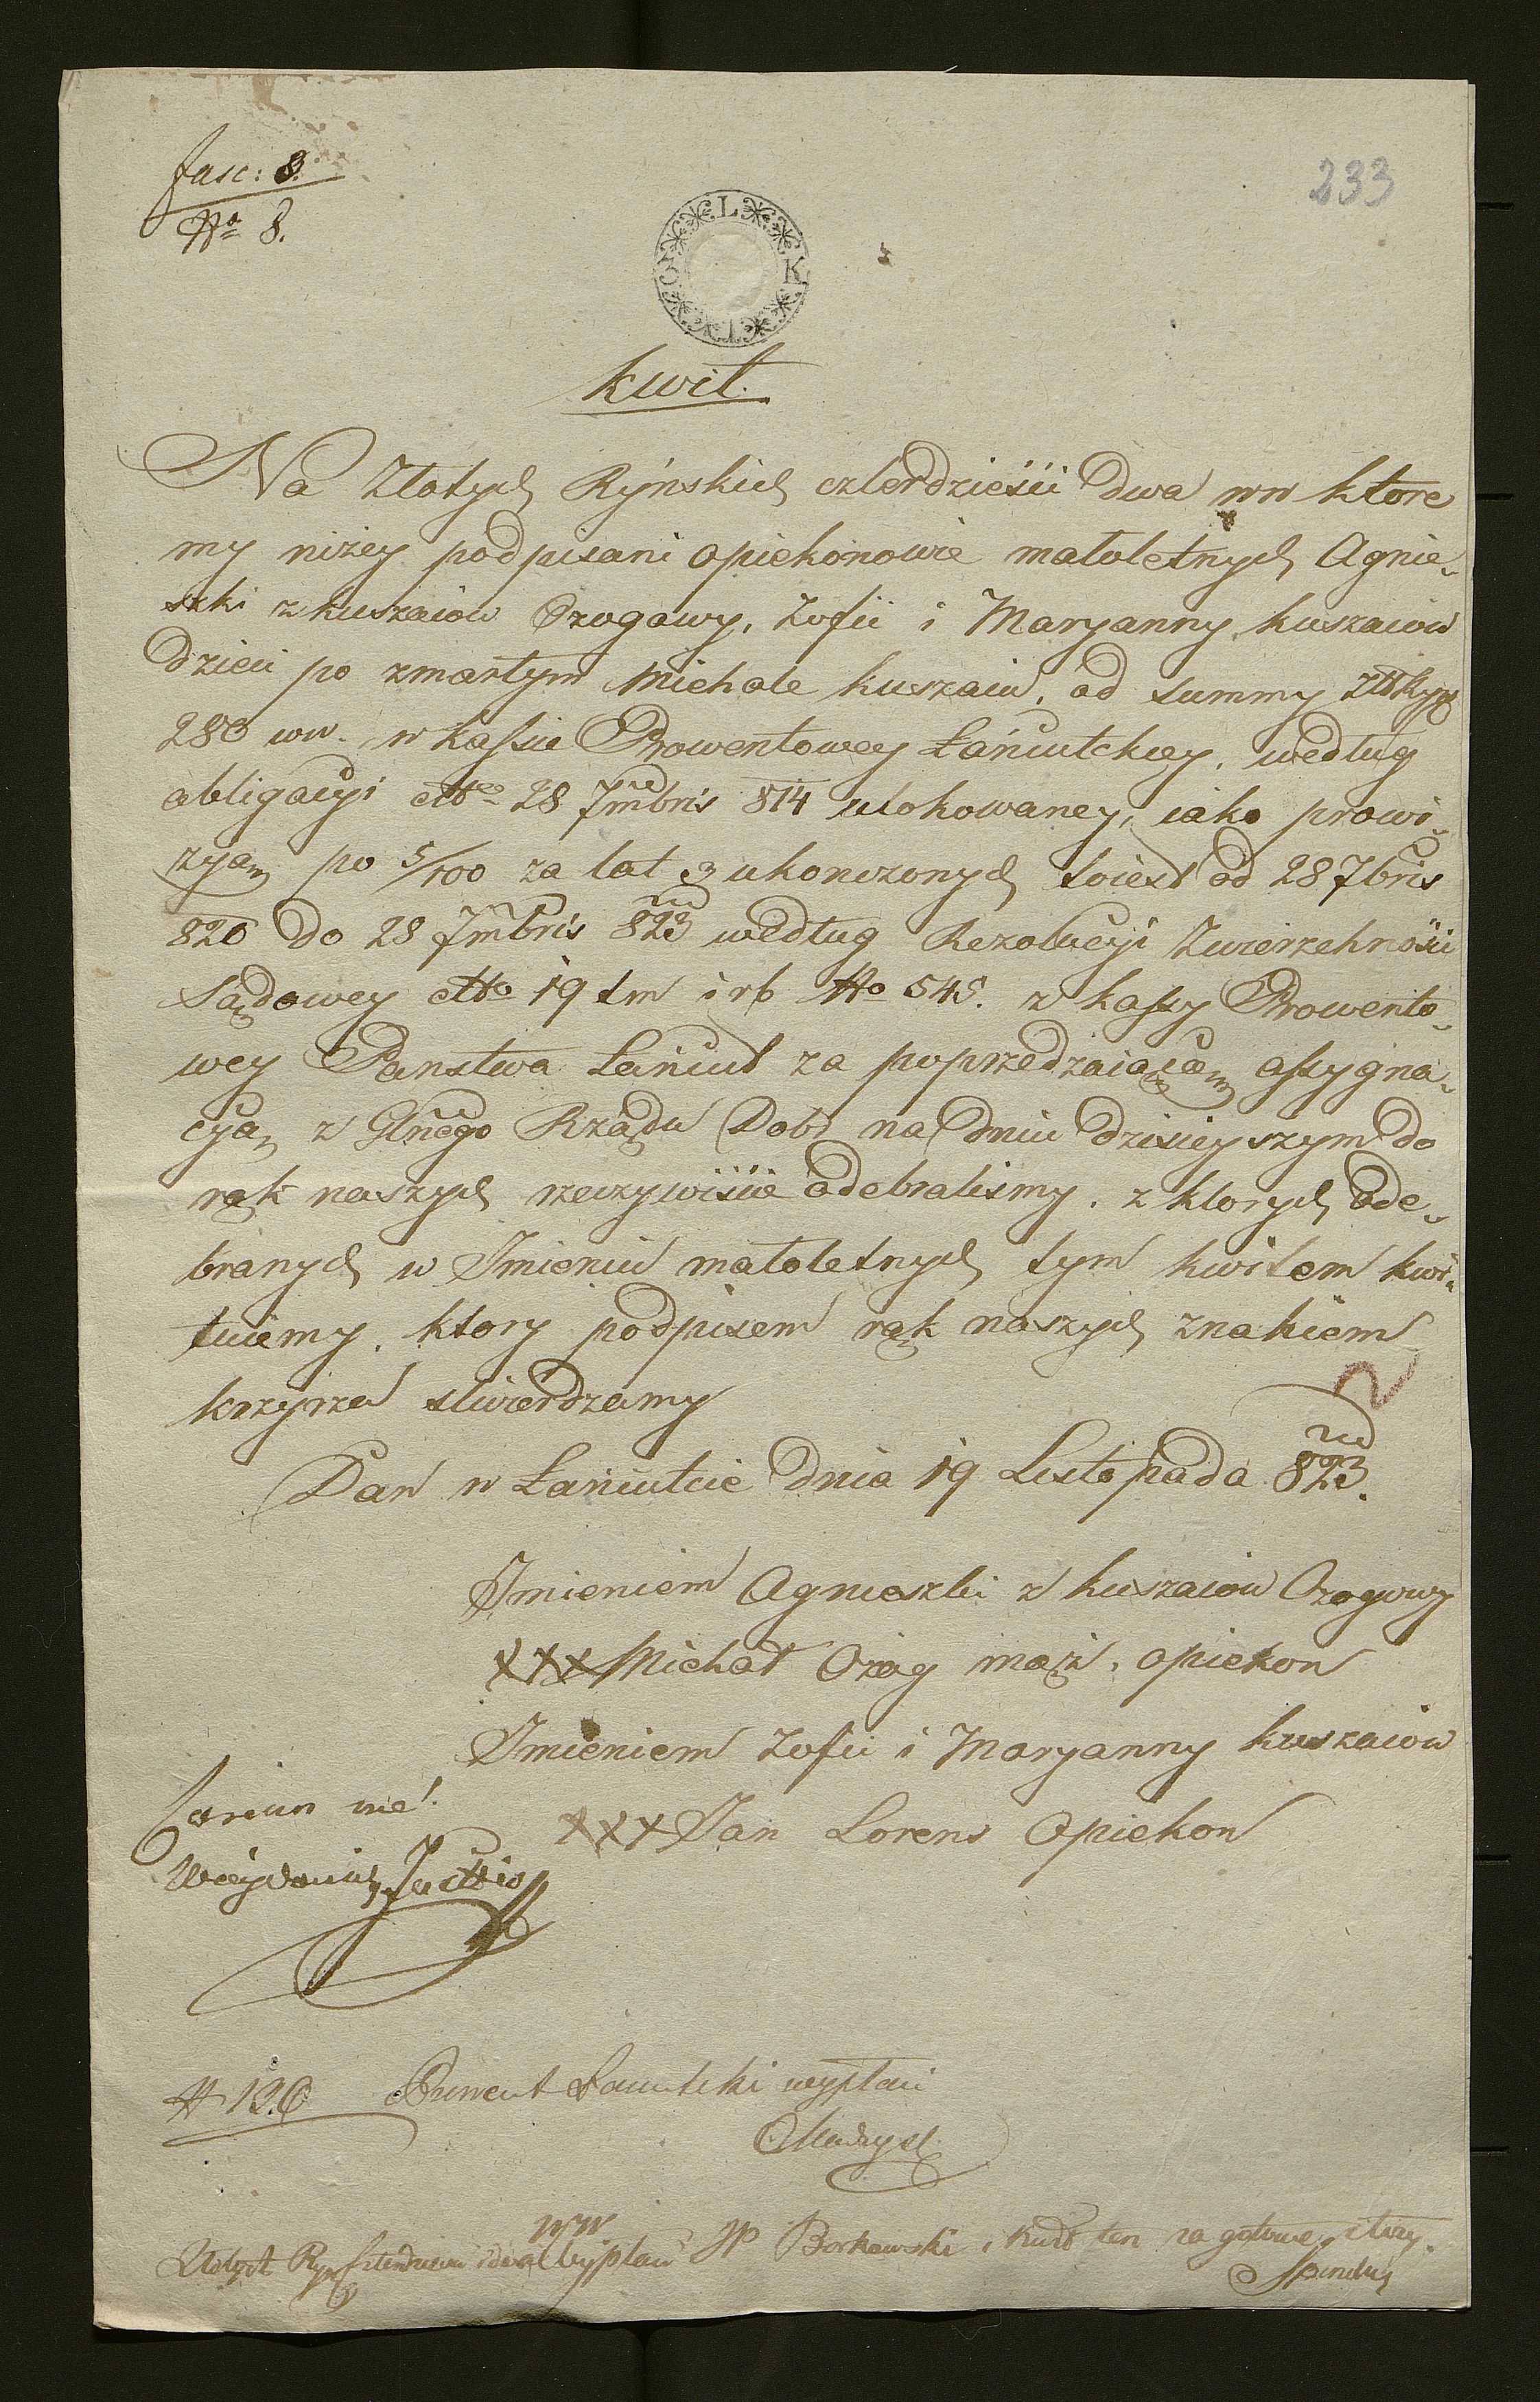 fasc: 8.
No 8.
233
L K T C
Kwit.
Na Złotych Ryńskich czterdzieści dwa ww ktore
my niżey podpisani opiekonowie małoletnych Agnie-
szki z Kuszaiow Ozogowy, Zofii i Maryanny Kuszaiow
Dzieci po zmarłym Michale Kuszaiu, od summy
280 ww. w Kassie Prowentowey Łańcutckiey, według
obligacyi dtto 28 7mbris 814 ulokowaney, iako prowi-
zyą po 5/100 za lat 3 ukonczonych toiest od 28 7bris
820 do 28 7mbris 823 według Rezolucyi Zwierzchności
Sądowey dtto 19 tm i rb No 545. z Kassy Prowento-
wey Panstwa Łańcut za poprzedzaiącą assygna-
cyą z Głnego Rządu Dobr na dniu dzisieyszym do
rąk naszych rzeczywiście odebraliśmy. z ktorych ode-
branych w Jmieniu małoletnych tym kwitem kwi-
tuiemy, ktory podpisem rąk naszych znakiem
krzyża stwierdzamy
Dan w Łańcutcie dnia 19 Listopada 823.
Jmieniem Agnieszki z Kuszaiow Ozogowy
XXX Michał Ożog mąż, opiekon
Jmieniem Zofii i Maryanny Kuszaiow
XXX Jan Lorens Opiekon
Coram me
Justiz
Prowent Łancutcki wypłaci
ww
Złotych Ryń czterdzieści dwa wypłaci JP Borkowski i kwit ten za gotowe